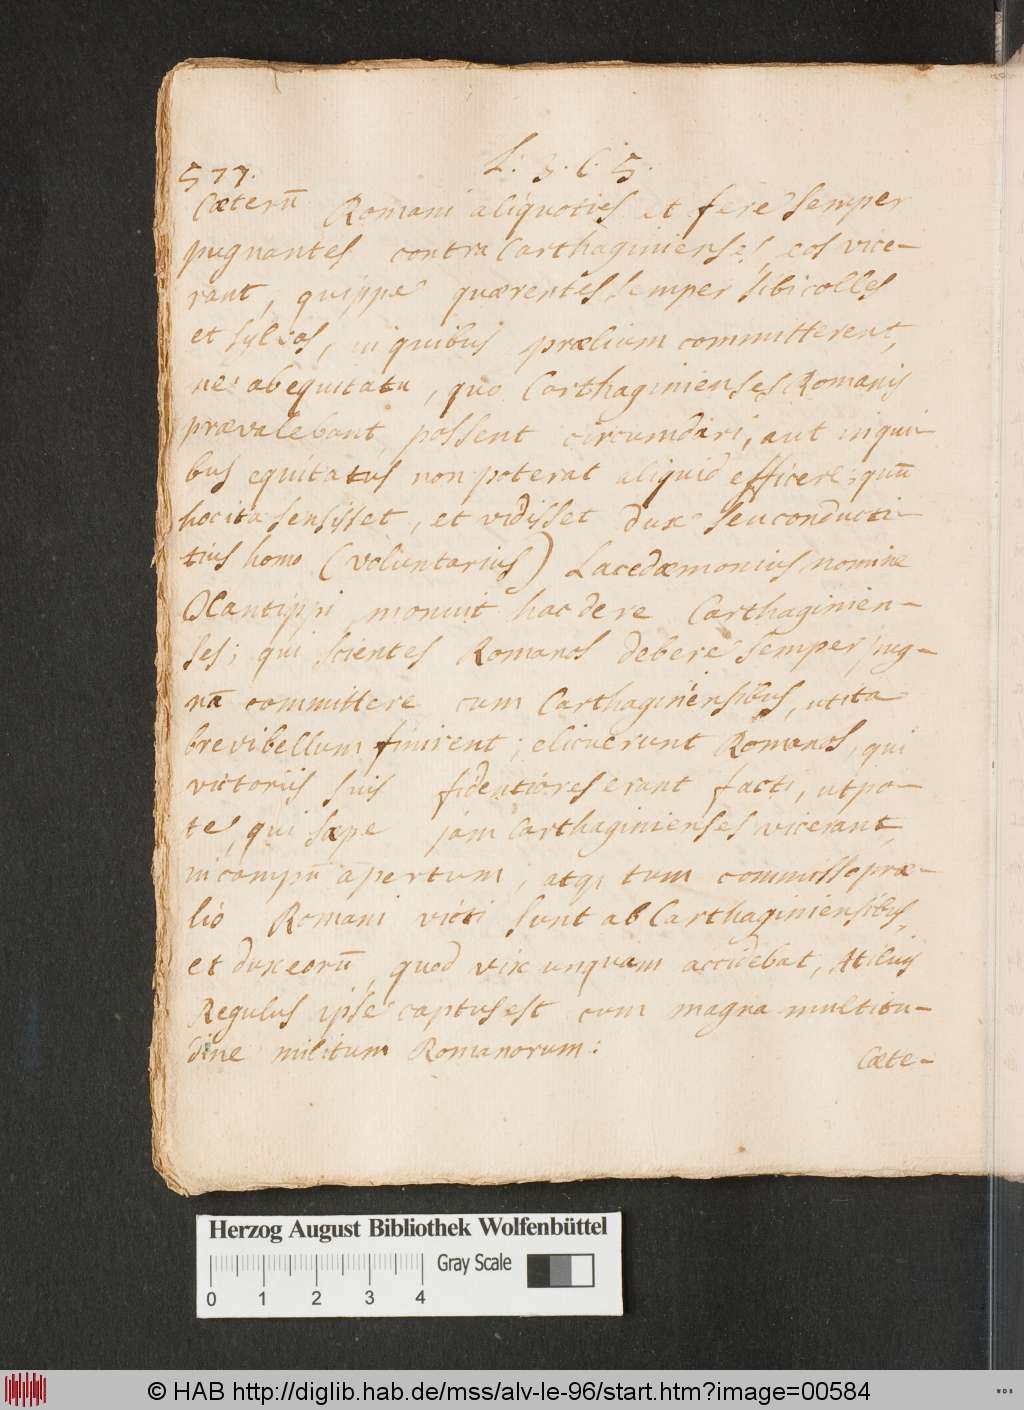 577.
L: 3. C. 5.
Cæterũ Romani aliquoties et fere semper
pugnantes contra Carthaginienses, eos vice-
rant, quippe quærentes semper sibi colles
et sylvas, in quibus prælium committerent,
ne ab equitatu, quo Carthaginienses Romanis
prævalebant, possent circumdari, aut in qui-
bus equitatus non poterat aliquid efficere; quũ
hoc ita sensisset, et vidisset dux seu conducti-
tius homo (voluntarius) Lacedæmonius nomine
Xantippi monuit hac de re Carthaginien-
ses; qui scientes Romanos debere semper pug-
nã committere cum Carthaginiensibus, ut ita
brevi bellum finirent; elicuerunt Romanos, qui
victoriis suis fidentiores erant facti, utpo-
te, qui sæpe jam Carthaginienses vicerant,
in campũ apertum, atq; tum commisso præ-
lio Romani victi sunt ab Carthaginiensibus,
et dux eorũ, quod vix unquam accidebat, Atilius
Regulus ipse captus est cum magna multitu-
dine militum Romanorum:
Cæte-
Herzog August Bibliothek Wolfenbüttel
Gray Scale
0 1 2 3 4
© HAB http://diglib.hab.de/mss/alv-le-96/start.htm?image=00584